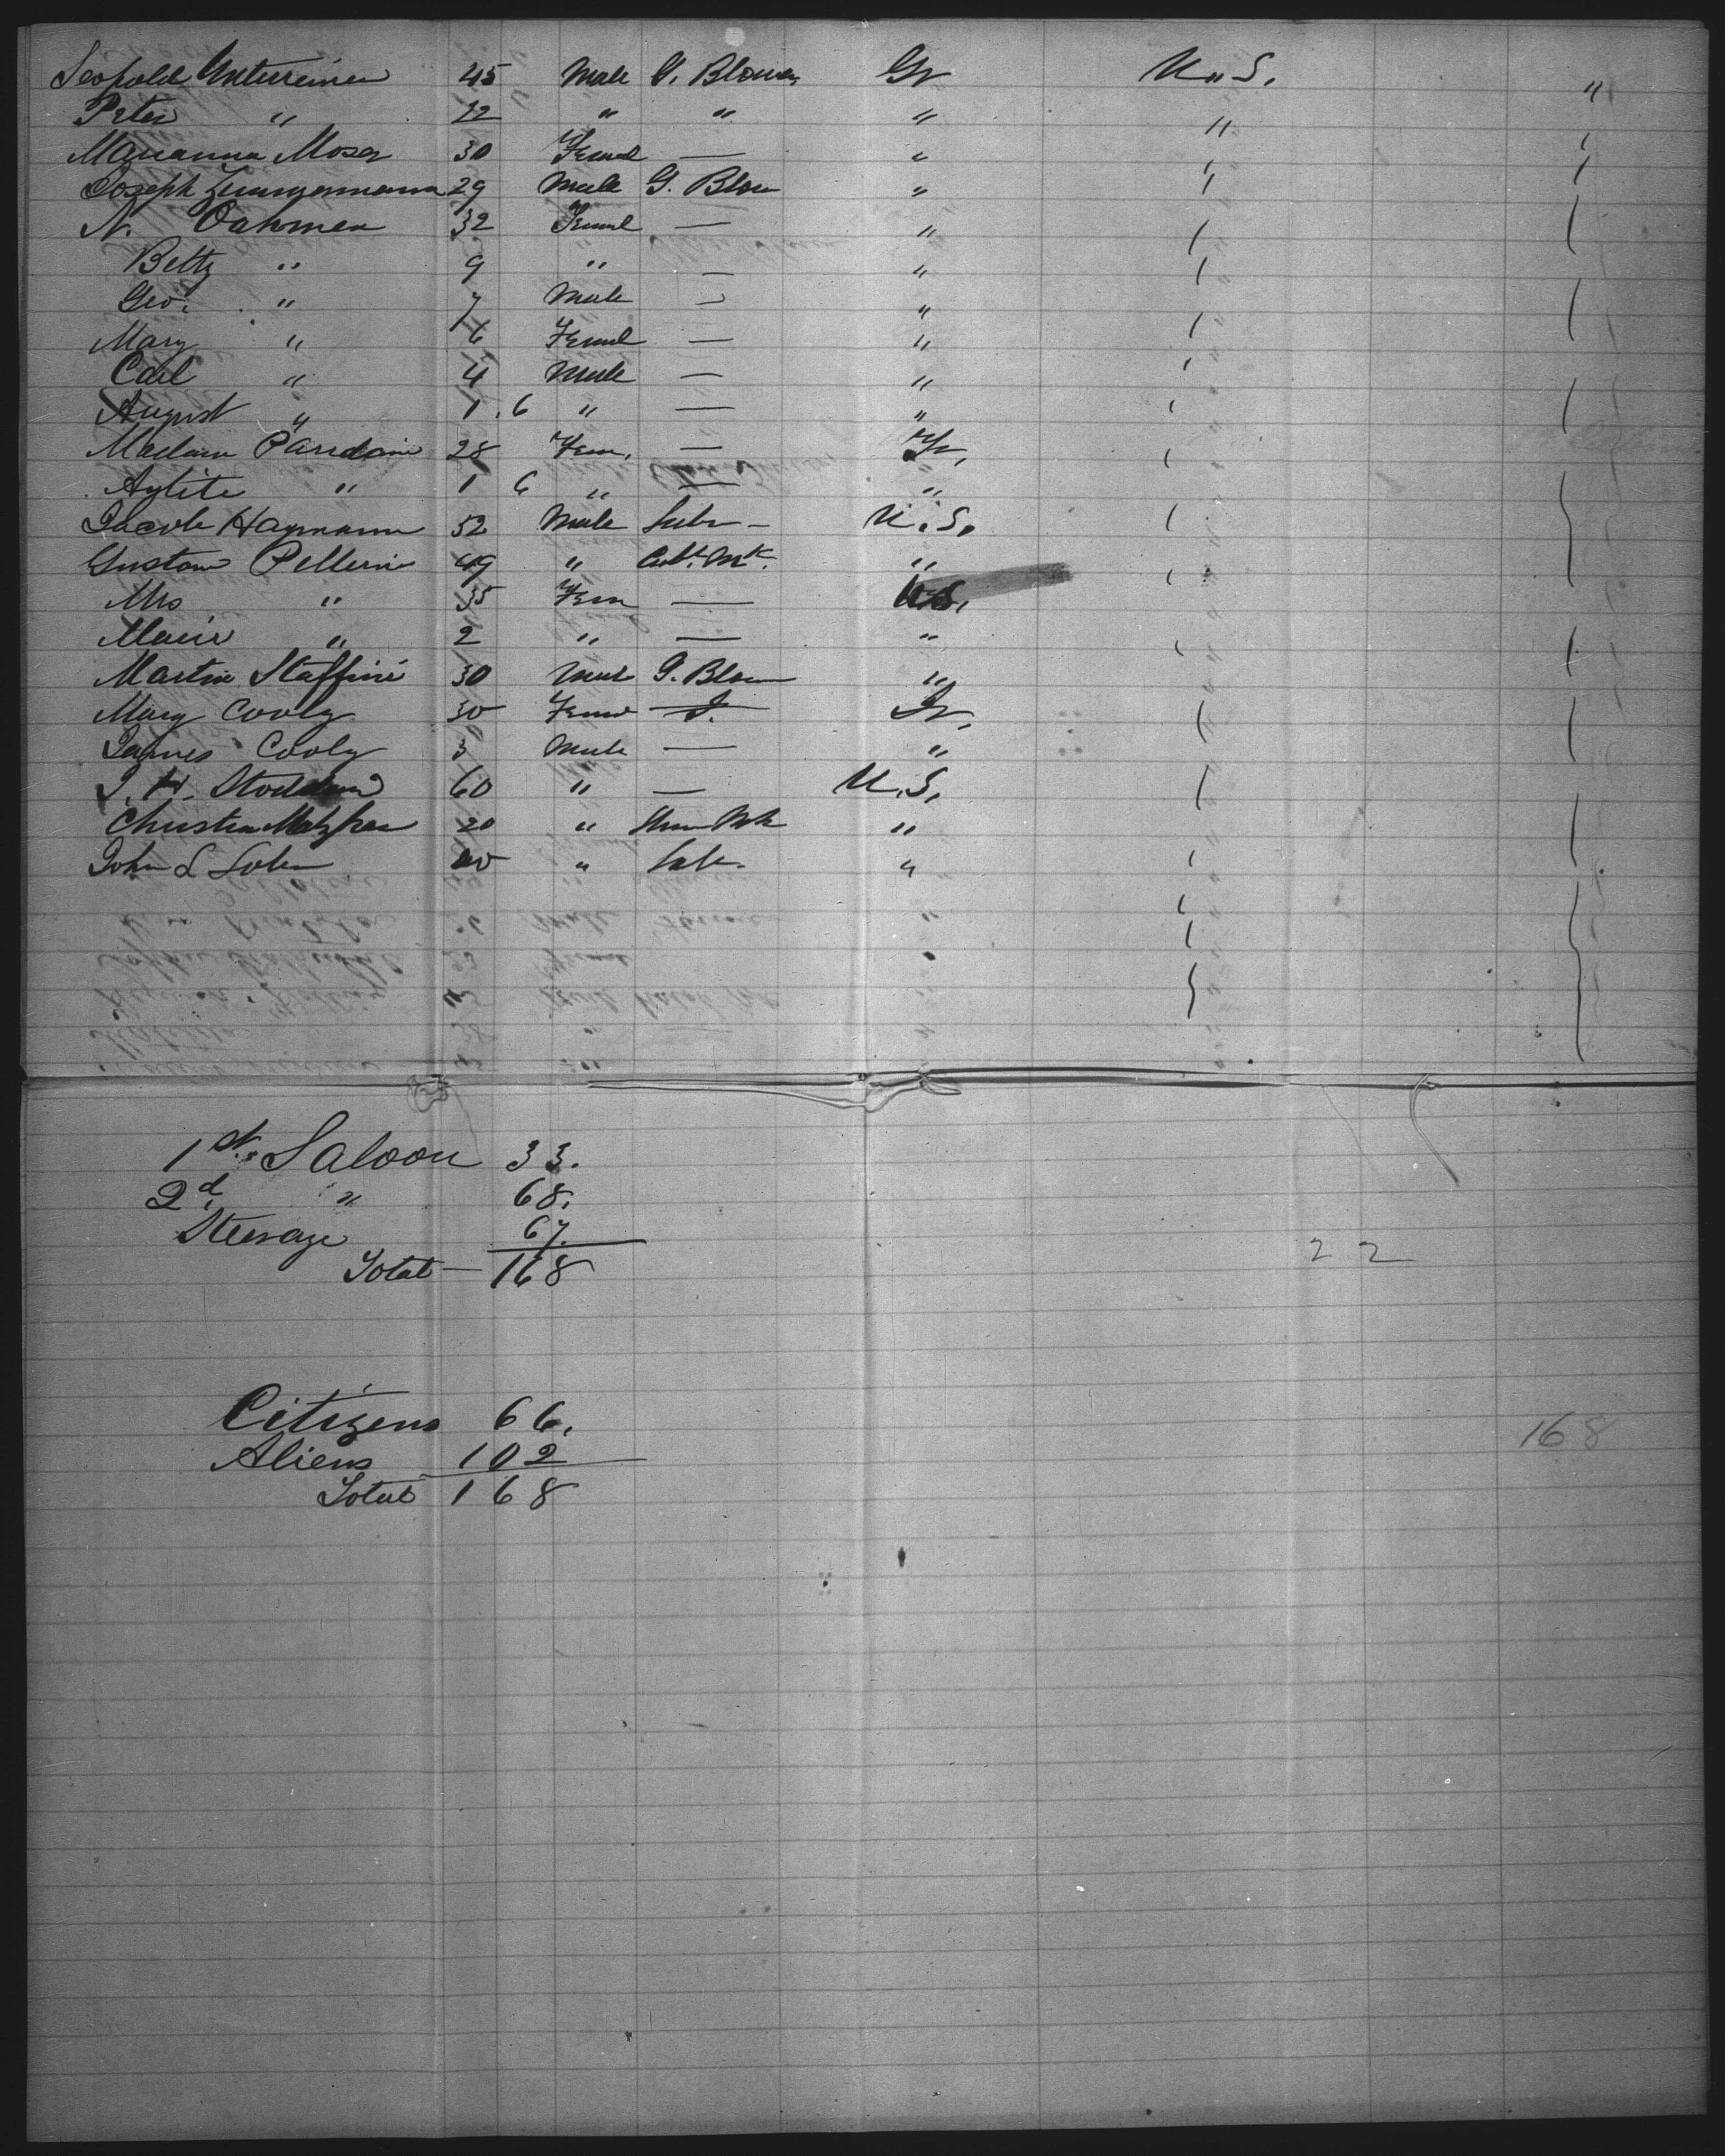 Leopold Unterreiner 45 Male G. Blower Gr U. S. "
Peter " 22 " " " "
Marianna Moser 30 Femal — "
Joseph Zimmermann 29 Male G. Blow "
N. Dahmen 32 Femal — "
Betty " 9 " — "
Geo. " 7 Male — "
Mary " 6 Femal — "
Carl " 4 Male — "
August " 1.6 " — "
Madam 28 Fem. — Fr.
" 1 6 " — "
Jacob Haymann 52 Male — U.S.
Gustav Pellerin 49 " Cabt. Mk. "
Mrs " 35 Fem — U.S.
Marie " 2 " — "
Martin Staffini 30 Male G. Blow "
Mary Cooly 30 Femal —
James Cooly 3 Male — "
J. H. 60 " — U.S.
Christian 20 " "
John L 40 " "
1st. Saloon 33.
2d. " 68.
Steerage 67.
Total — 168
2 2
Citizens 66.
168
Aliens 102
Total 168